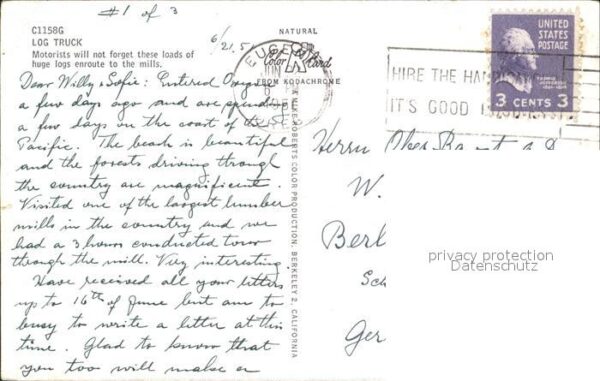 #1 of 3
C1158G
LOG TRUCK
Motorists will not forget these loads of
huge logs enroute to the mills.
6/21.5
NATURAL
Color Card
FROM KODACHROME
EUGENE
JUN
Dear Willy & Sofie: Entered Oregon
a few days ago and are spending
a few days on the coast of the
Pacific. The beach is beautiful
and the forests driving through
the country are magnificent.
Visited one of the largest lumber
mills in the country and we
had a 3 hours conducted tour
through the mill. Very interesting.
Have received all your letters
up to 16th of June but am to
busy to write a letter at this
time. Glad to know that
you too will make a
MIKE ROBERTS COLOR PRODUCTION, BERKELEY 2, CALIFORNIA
UNITED
STATES
POSTAGE
3 CENTS 3
HIRE THE
IT'S GOOD
Herrn
W.
Berl
Sch
Ger
privacy protection
Datenschutz